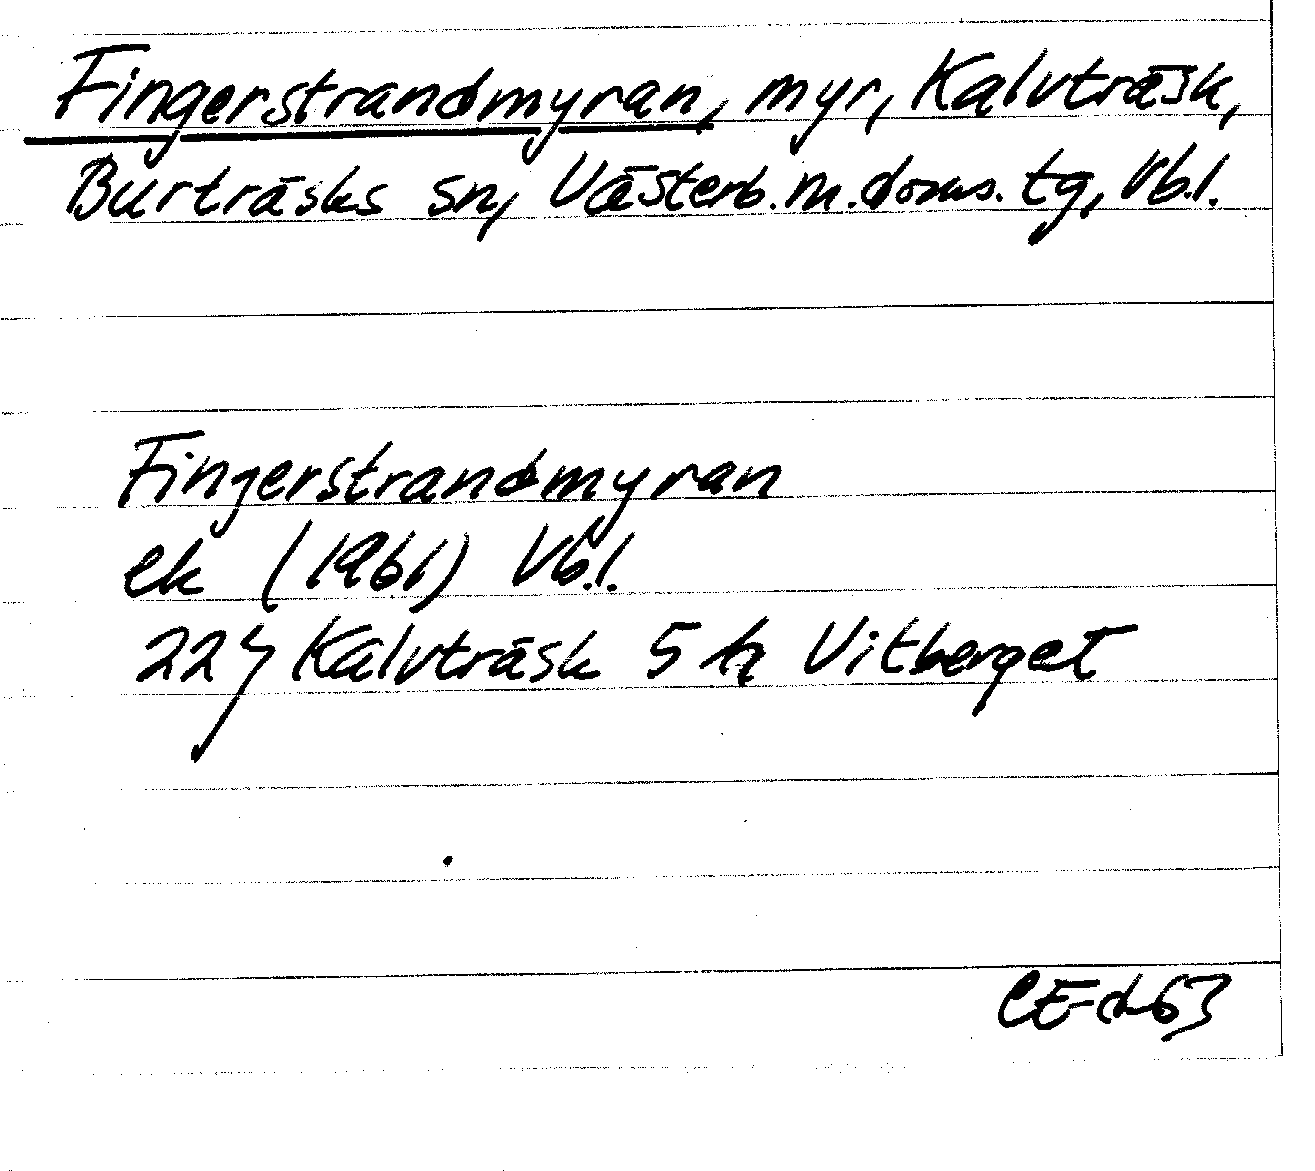 Fingerstrandmyran, myr, Kalvträsk,
Burträsks sn, Västerb.m.doms.tg, Vb.l.
Fingerstrandmyran
ek (1961) Vb.l.
22 Kalvträsk 5 h Vitberget